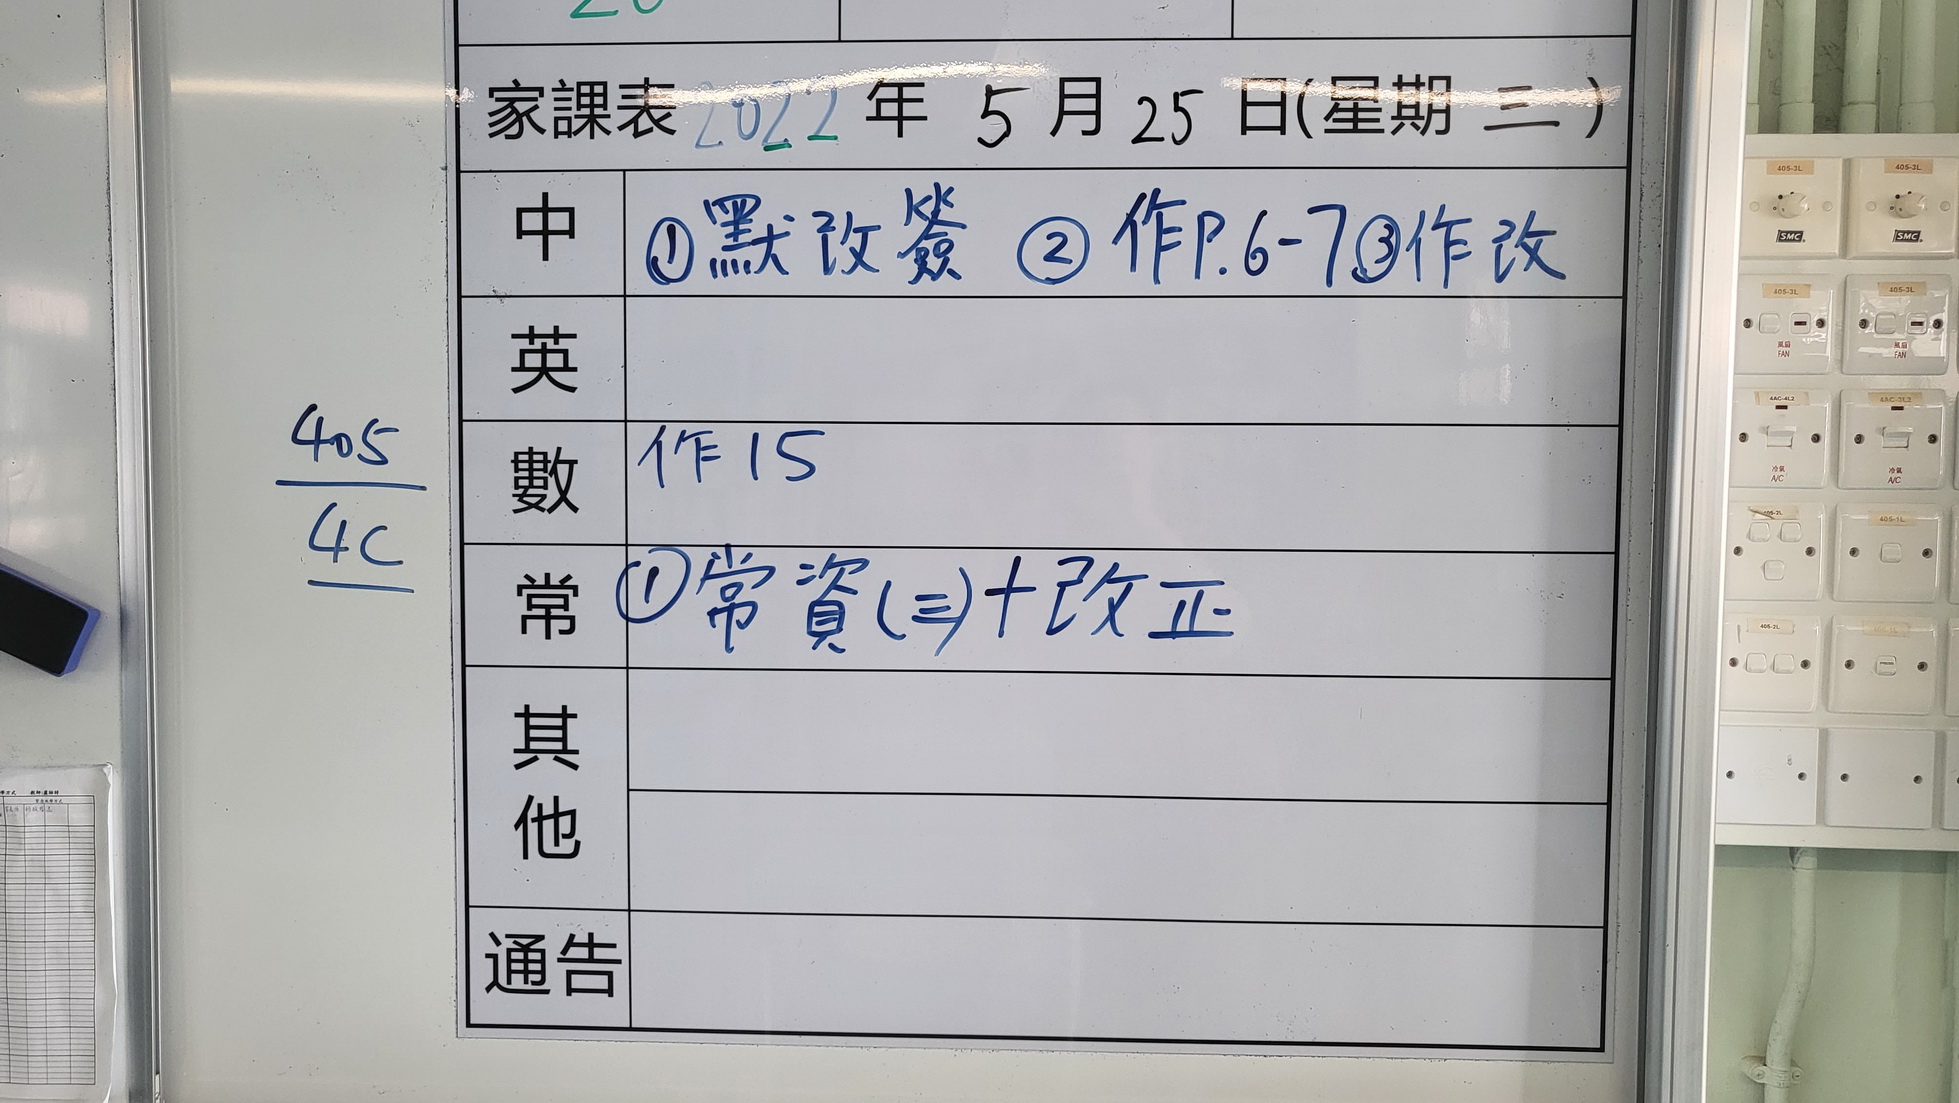 20
家課表 2022 年 5 月 25 日(星期 三)
中 ①默改簽 ②作P.6-7③作改
英
數 作15
常 ①常資(三)+改正
其他
通告
405
4C
405-3L 405-3L
SMC SMC
405-3L 405-3L
風扇 FAN 風扇 FAN
4AC-4L2 4AC-3L2
冷氣 A/C 冷氣 A/C
405-2L 405-1L
405-2L